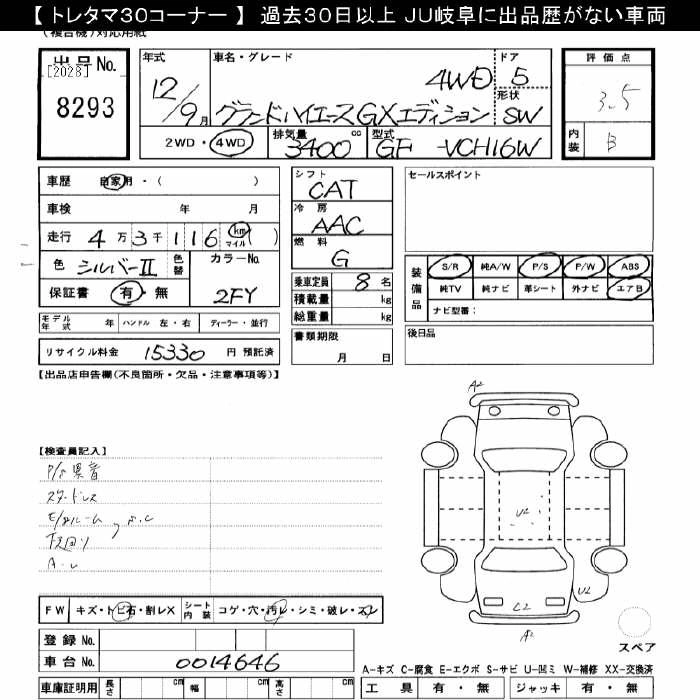 【トレタマ30コーナー】 過去30日以上 JU岐阜に出品歴がない車両
(複合機)対応用紙
出品No.
[2028]
8293
年式 車名・グレード ドア
12/9月 グランドハイエースGXエディション 4WD 5
形状 SW
2WD・4WD 排気量 3400 cc 型式 GF -VCH16W
評価点
3.5
内装 B
車歴 自家用・( )
車検 年 月
走行 4万3千116 km マイル ( )
色 シルバーII 色替 カラーNo.
保証書 有・無 2FY
モデル年式 年 ハンドル 左・右 ディーラー・並行
リサイクル料金 15330 円 預託済
シフト
CAT
冷房
AAC
燃料
G
乗車定員 8 名
積載量 kg
総重量 kg
書類期限
月 日
セールスポイント
装備品 S/R 純A/W P/S P/W ABS
純TV 純ナビ 革シート 外ナビ エアB
ナビ型番:
後日品
【出品店申告欄(不良箇所・欠品・注意事項等)】
【検査員記入】
P/S異音
スタッドレス
E/gルーム
下回り
A-2
U2
U2
C2
A2
FW キズ・トビ石・割レX シート内装 コゲ・穴・汚レ・シミ・破レ・スレ
登録No.
車台No. 0014646
スペア
A-キズ C-腐食 E-エクボ S-サビ U-凹ミ W-補修 XX-交換済
車庫証明用 長さ cm 幅 cm 高さ cm
工具 有・無 ジャッキ 有・無